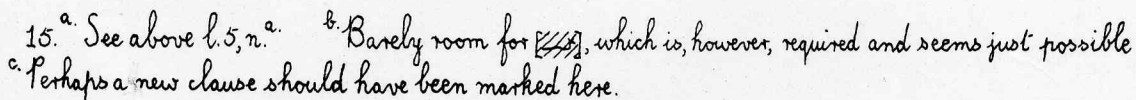 15.ᵃ· See above l.5, n.ᵃ· ᵇ·Barely room for [], which is, however, required and seems just possible
ᶜ·Perhaps a new clause should have been marked here.